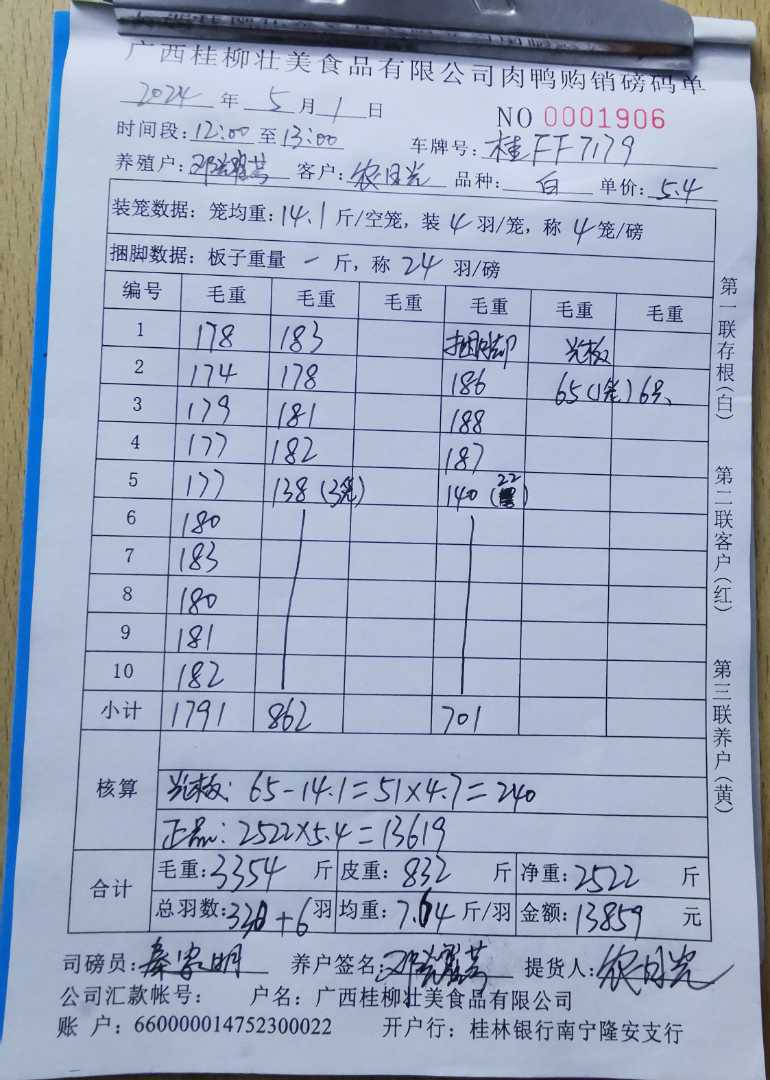 广西桂柳壮美食品有限公司肉鸭购销磅码单
2024 年 5 月 1 日 NO 0001906
时间段: 12:00 至 13:00 车牌号: 桂FF7179
养殖户: 邓 芳 客户: 农日光 品种: 白 单价: 5.4
装笼数据: 笼均重: 14.1 斤/空笼, 装 4 羽/笼, 称 4 笼/磅
捆脚数据: 板子重量 一 斤, 称 24 羽/磅
编号 毛重 毛重 毛重 毛重 毛重 毛重
1 178 183 捆脚 光板
2 174 178 186 65(1笼)6只、
3 179 181 188
4 177 182 187
5 177 138(3笼) 140(22)
6 180
7 183
8 180
9 181
10 182
小计 1791 862 701
核算
光板: 65-14.1=51×4.7=240
正品: 2522×5.4=13619
合计
毛重: 3354 斤 皮重: 832 斤 净重: 2522 斤
总羽数: 330+6 羽 均重: 7.64 斤/羽 金额: 13859 元
司磅员: 秦家明 养户签名: 邓 芳 提货人: 农日光
公司汇款帐号: 户名: 广西桂柳壮美食品有限公司
账 户: 660000014752300022 开户行: 桂林银行南宁隆安支行
第一联存根(白)
第二联客户(红)
第三联养户(黄)